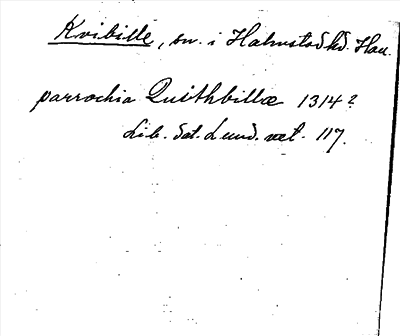 Kvibille, sn. i Halmstads hd. Hall.
parrochia Quithbillæ 1314?
Lib. dat. Lund. vet. 117.